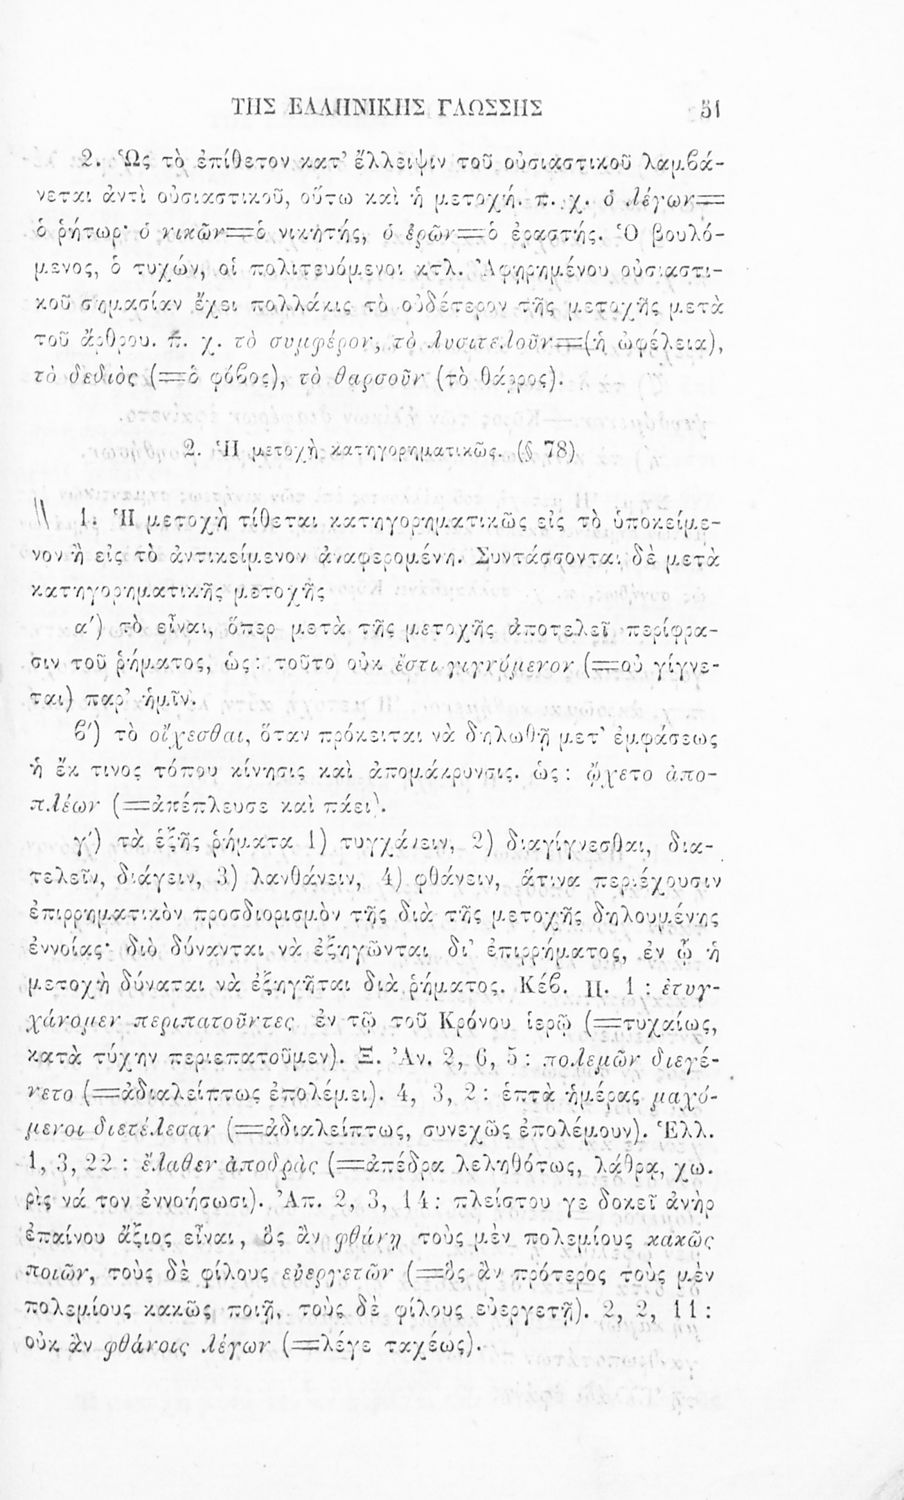 ΤΗΣ ΕΛΛΗΝΙΚΗΣ ΓΛΩΣΣΗΣ 51
2. Ὡς τὸ ἐπίθετον κατ' ἔλλειψιν τοῦ οὐσιαστικοῦ λαμβά-
νεται ἀντὶ οὐσιαστικοῦ, οὕτω καὶ ἡ μετοχή. π. χ. ὁ λέγων=
ὁ ῥήτωρ· ὁ νικῶν=ὁ νικητής, ὁ ἐρῶν=ὁ ἐραστής. Ὁ βουλό-
μενος, ὁ τυχών, οἱ πολιτευόμενοι κτλ. Ἀφηρημένου οὐσιαστι-
κοῦ σημασίαν ἔχει πολλάκις τὸ οὐδέτερον τῆς μετοχῆς μετὰ
τοῦ ἄρθρου. π. χ. τὸ συμφέρον, τὸ λυσιτελοῦν=(ἡ ὠφέλεια),
τὸ δεδιὸς (=ὁ φόβος), τὸ θαρσοῦν (τὸ θάρρος).
2. Ἡ μετοχὴ κατηγορηματικῶς. (§ 78)
1. Ἡ μετοχὴ τίθεται κατηγορηματικῶς εἰς τὸ ὑποκείμε-
νον ἢ εἰς τὸ ἀντικείμενον ἀναφερομένη. Συντάσσονται δὲ μετὰ
κατηγορηματικῆς μετοχῆς
α') τὸ εἶναι, ὅπερ μετὰ τῆς μετοχῆς ἀποτελεῖ περίφρα-
σιν τοῦ ῥήματος, ὡς: τοῦτο οὐκ ἔστι γιγνόμενον (=οὐ γίγνε-
ται) παρ' ἡμῖν.
β') τὸ οἴχεσθαι, ὅταν πρόκειται νὰ δηλωθῇ μετ' ἐμφάσεως
ἡ ἔκ τινος τόπου κίνησις καὶ ἀπομάκρυνσις. ὡς: ᾤχετο ἀπο-
πλέων (=ἀπέπλευσε καὶ πάει).
γ') τὰ ἑξῆς ῥήματα 1) τυγχάνειν, 2) διαγίγνεσθαι, δια-
τελεῖν, διάγειν, 3) λανθάνειν, 4) φθάνειν, ἅτινα περιέχουσιν
ἐπιρρηματικὸν προσδιορισμὸν τῆς διὰ τῆς μετοχῆς δηλουμένης
ἐννοίας· διὸ δύνανται νὰ ἐξηγῶνται δι' ἐπιρρήματος, ἐν ᾧ ἡ
μετοχὴ δύναται νὰ ἐξηγῆται διὰ ῥήματος. Κέβ. Π. 1 : ἐτυγ-
χάνομεν περιπατοῦντες ἐν τῷ τοῦ Κρόνου ἱερῷ (=τυχαίως,
κατὰ τύχην περιεπατοῦμεν). Ξ. Ἀν. 2, 6, 5 : πολεμῶν διεγέ-
νετο (=ἀδιαλείπτως ἐπολέμει). 4, 3, 2 : ἑπτὰ ἡμέρας μαχό-
μενοι διετέλεσαν (=ἀδιαλείπτως, συνεχῶς ἐπολέμουν). Ἑλλ.
1, 3, 22 : ἔλαθεν ἀποδρὰς (=ἀπέδρα λεληθότως, λάθρα, χω.
ρὶς νά τον ἐννοήσωσι). Ἀπ. 2, 3, 14 : πλείστου γε δοκεῖ ἀνὴρ
ἐπαίνου ἄξιος εἶναι, ὃς ἂν φθάνῃ τοὺς μὲν πολεμίους κακῶς
ποιῶν, τοὺς δὲ φίλους εὐεργετῶν (=ὃς ἂν πρότερος τοὺς μὲν
πολεμίους κακῶς ποιῇ, τοὺς δὲ φίλους εὐεργετῇ). 2, 2, 11 :
οὐκ ἂν φθάνοις λέγων (=λέγε ταχέως).